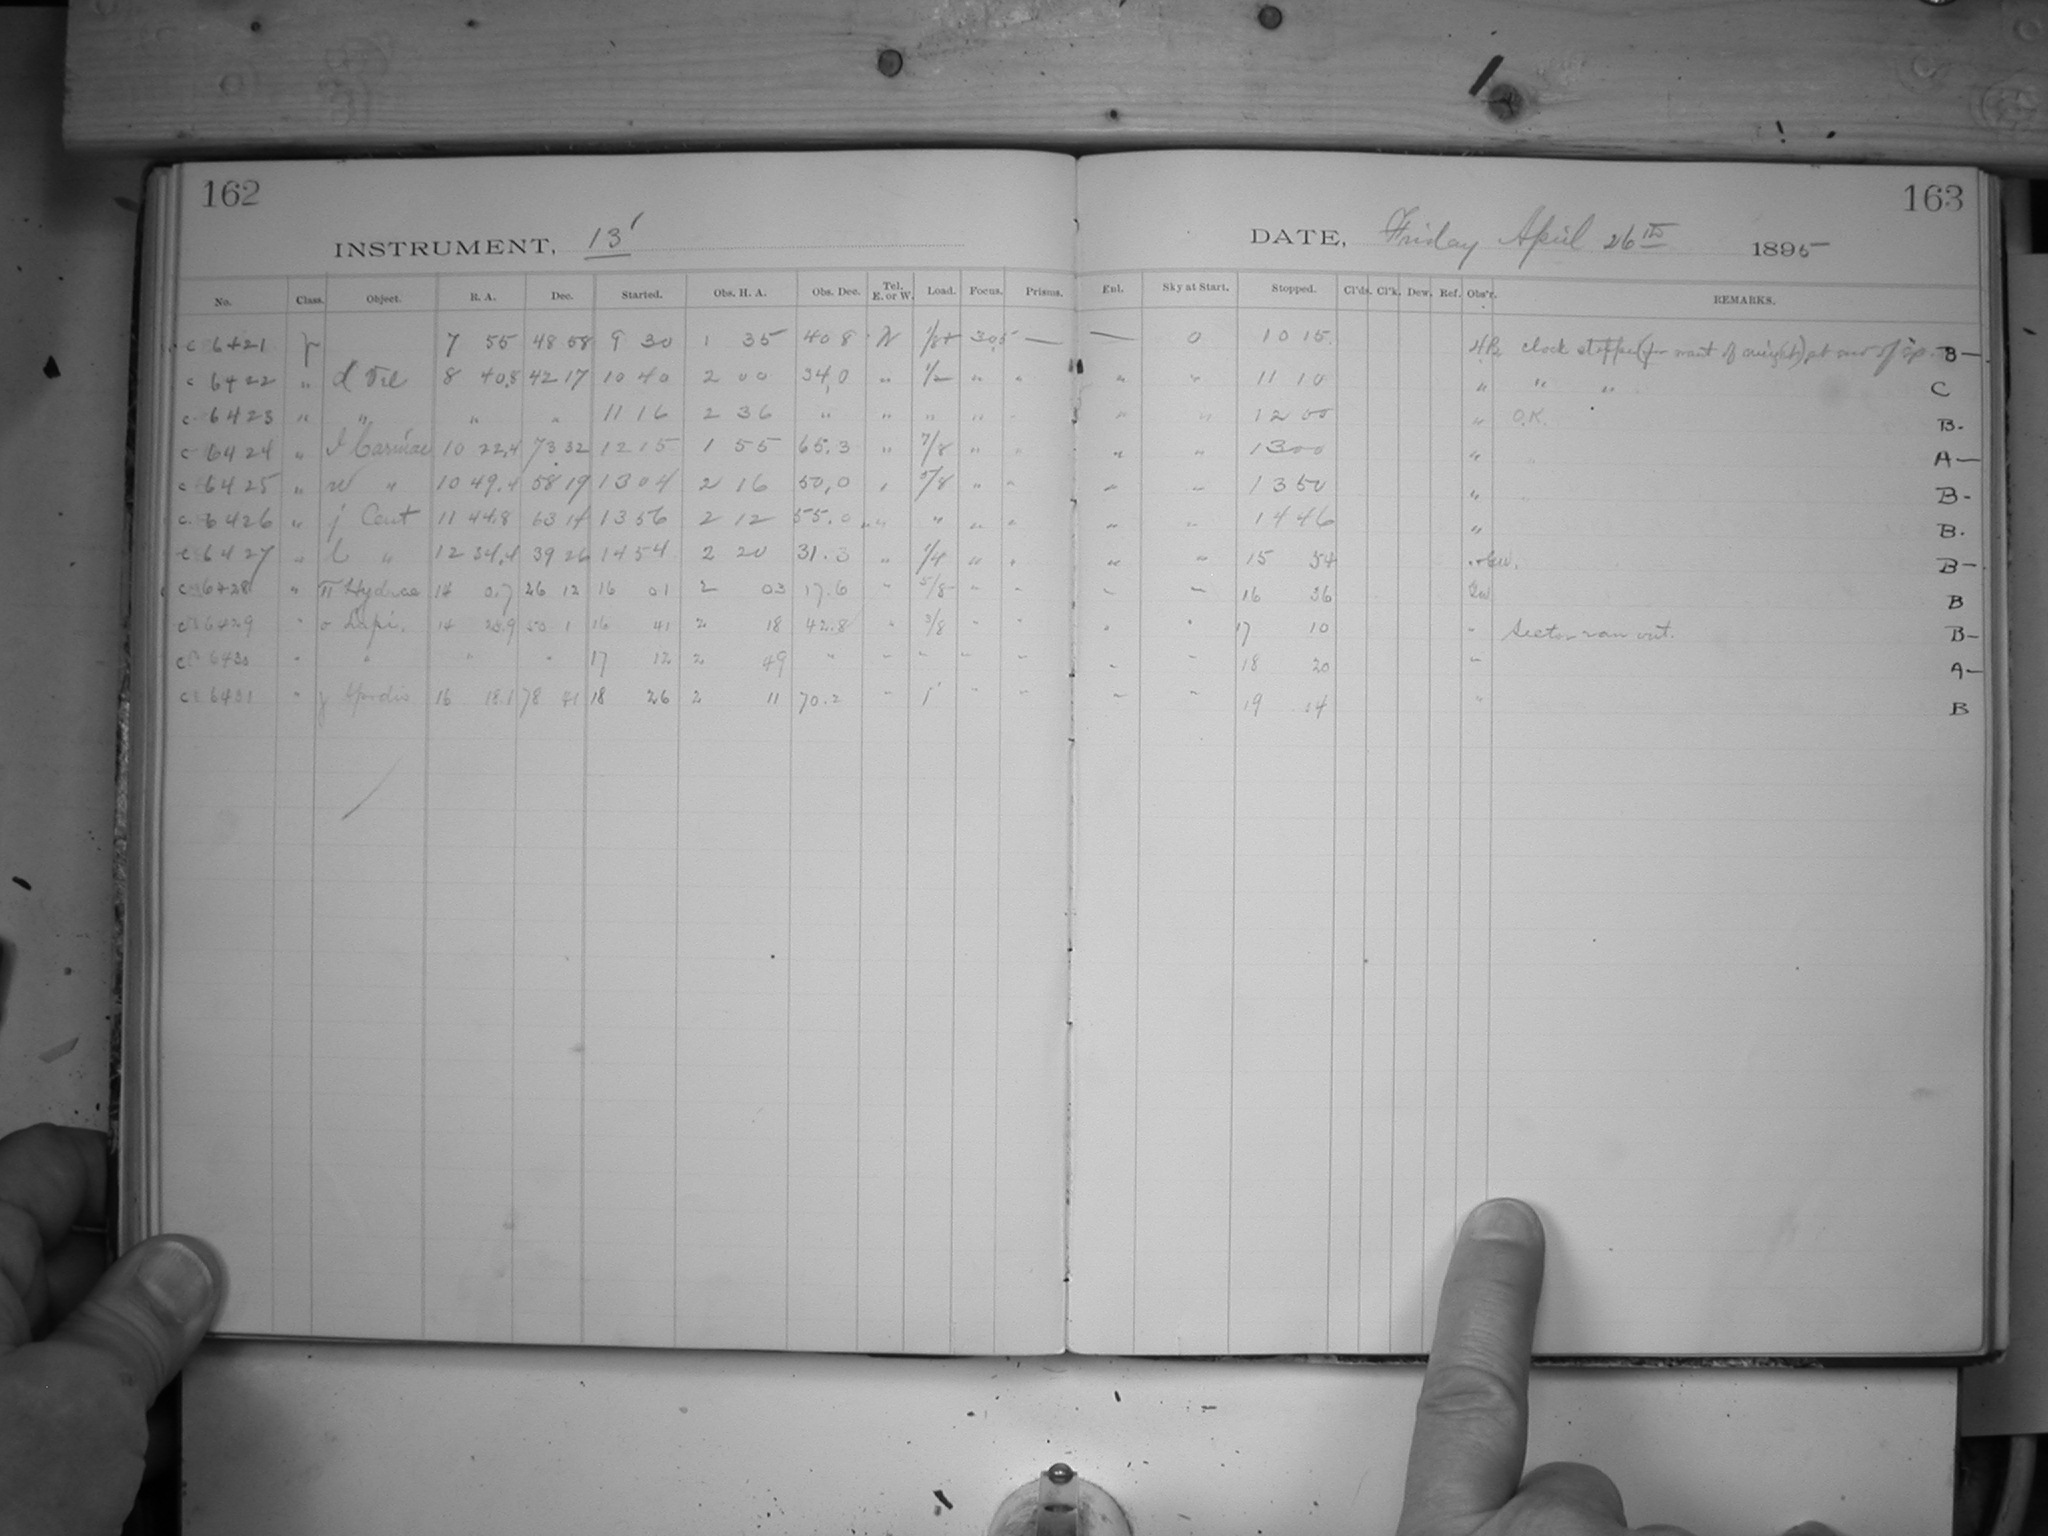 162
163
INSTRUMENT, 13'
DATE, Friday April 26th 1895
No. Class. Object. R. A. Dec. Started. Obs. H. A. Obs. Dec. Tel. E. or W. Load. Focus. Prisms. Enl. Sky at Start. Stopped. Cl'ds. Cl'k. Dew. Ref. Obs'r. REMARKS.
c 6421 7 55 48 58 9 30 1 35 40 8 W 1/8+ 30.5 — — 0 10 15 clock stopped (for want of weights) at end of B—
c 6422 " d Vel 8 40.8 42 17 10 40 2 00 34,0 " 1/2 " " " " 11 10 " " " C
c 6423 " " " " 11 16 2 36 " " " " " " " 12 00 " O.K. B-
c 6424 " I Carinae 10 22,4 73 32 12 15 1 55 65.3 " 7/8 " " " " 13 00 " A—
c 6425 " w " 10 49.4 58 19 13 04 2 16 50,0 " 5/8 " " " " 13 50 " B-
c 6426 " j Cent 11 44.8 63 14 13 56 2 12 55.0 " " " " " " 14 46 " B-
c 6427 " l " 12 34,4 39 26 14 54 2 20 31.3 " 1/4 " " " " 15 54 B—
c 6428 " π Hydrae 14 0.7 26 12 16 01 2 03 17.6 " 5/8 " " " " 16 36 B
c 6429 " o Lupi. 14 1 16 41 2 18 42.8 " 3/8 " " " " 17 10 " Sector ran out. B-
c 6430 " " " " 17 12 2 49 " " " " " " " 18 20 " A—
c 6431 " γ 16 18.1 78 41 18 26 2 11 70.2 " 1' " " " " 19 14 " B